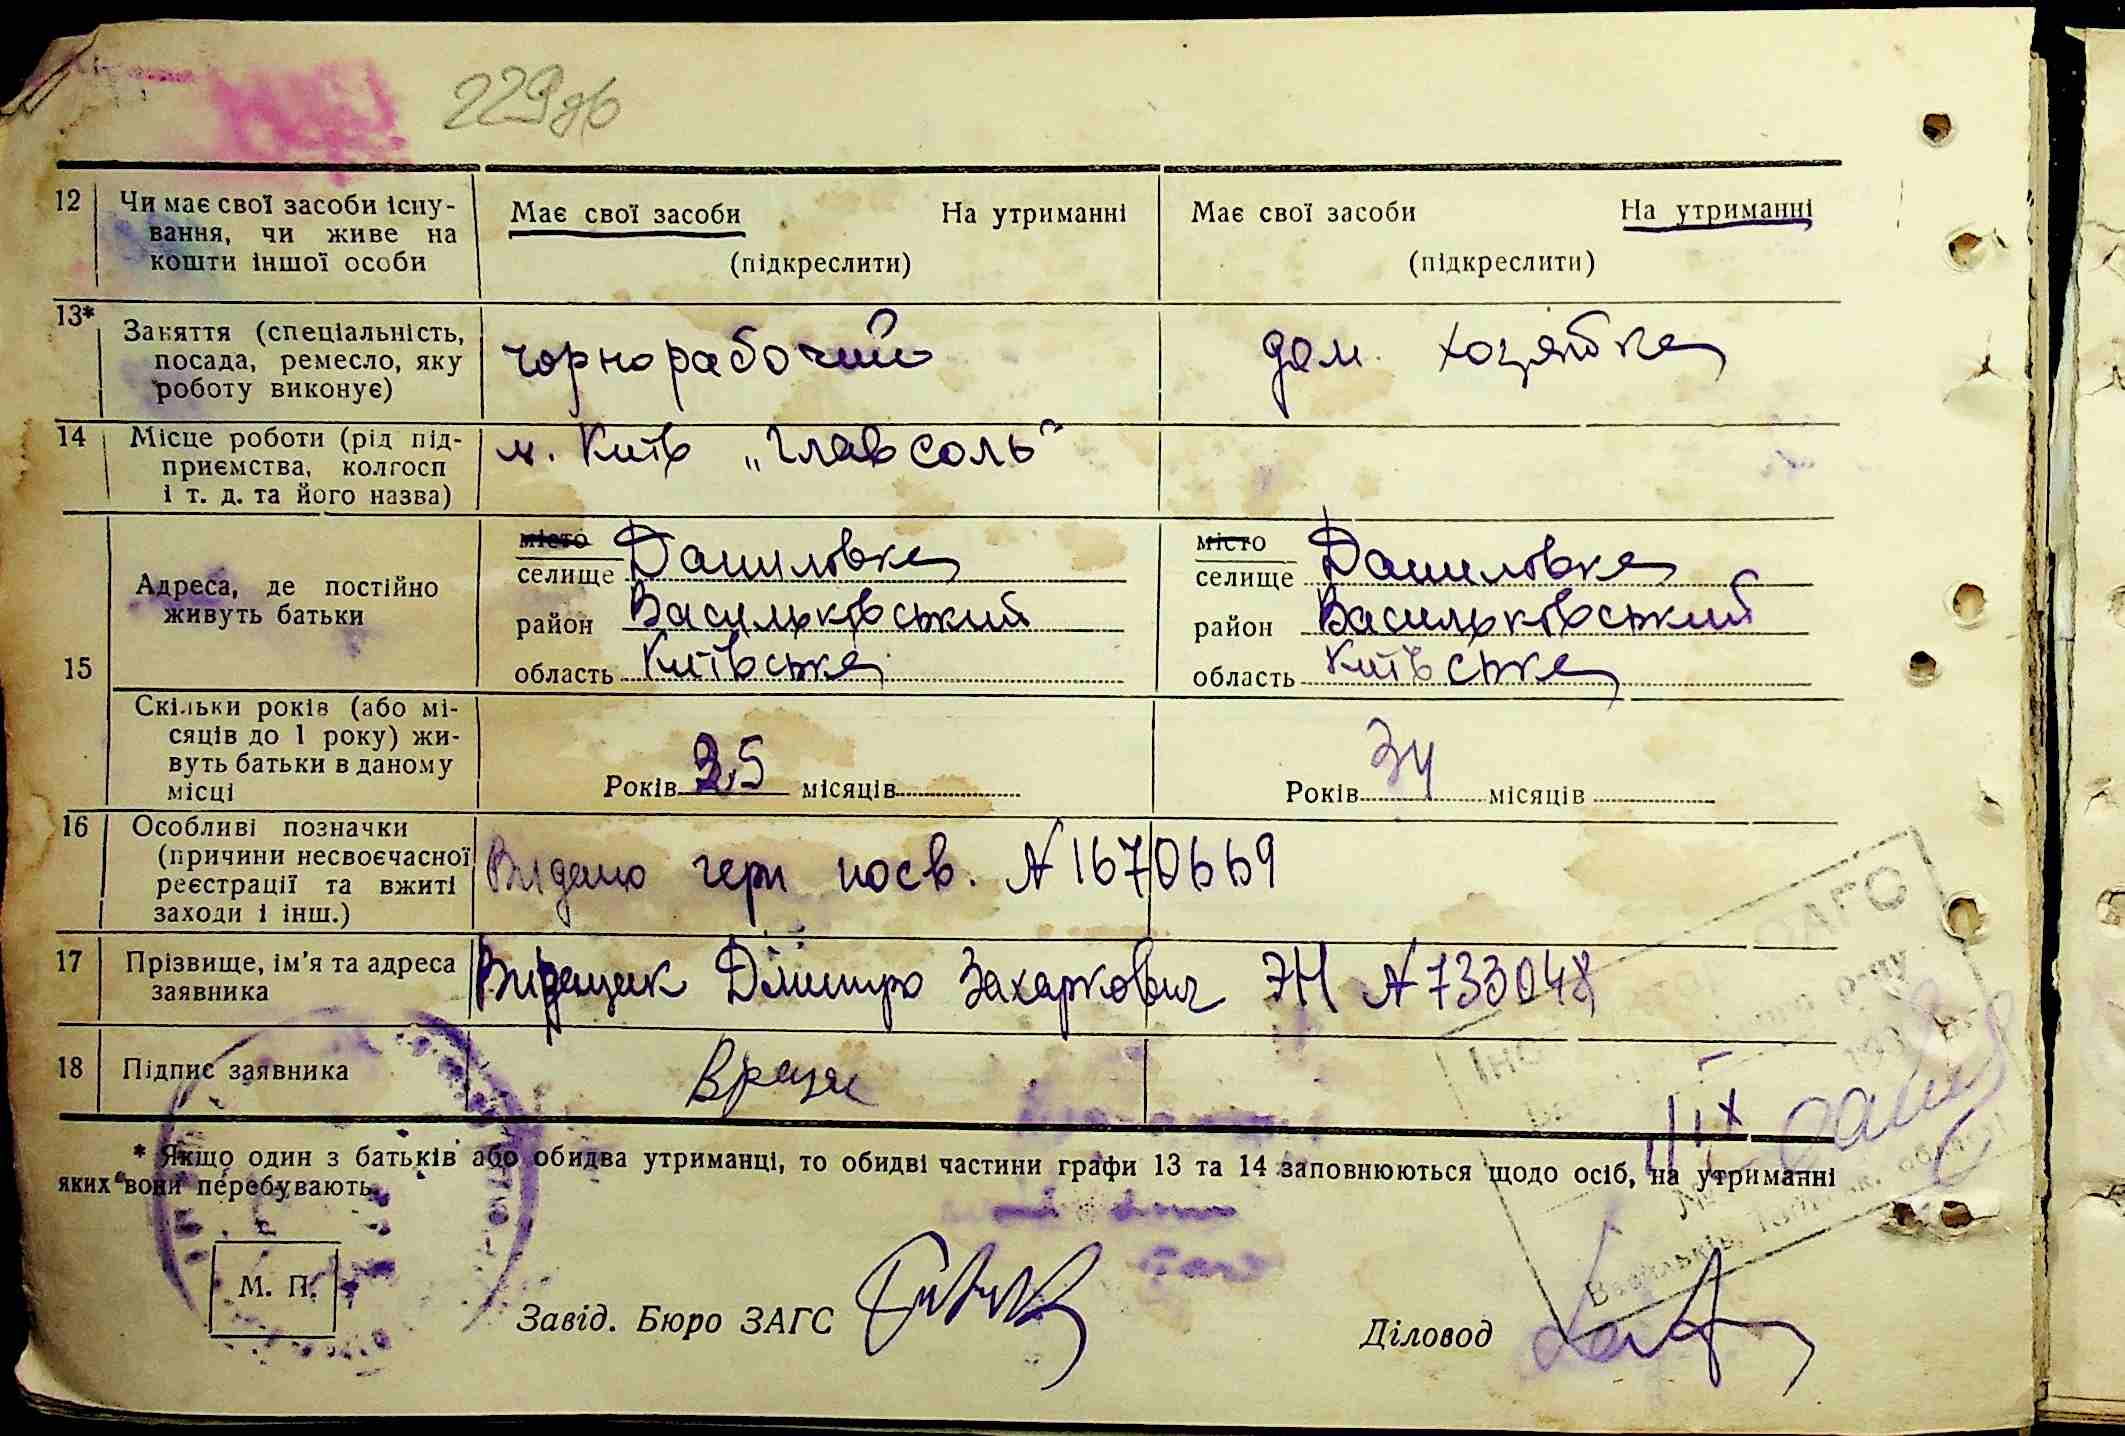 229зв
12 Чи має свої засоби існу-
вання, чи живе на
кошти іншої особи
Має свої засоби На утриманні
(підкреслити)
Має свої засоби На утриманні
(підкреслити)
13* Заняття (спеціальність,
посада, ремесло, яку
роботу виконує)
чорнорабочий
дом. хозяйка
14 Місце роботи (рід під-
приємства, колгосп
і т. д. та його назва)
м. Київ „Главсоль"
15
Адреса, де постійно
живуть батьки
місто
селище Даниловка
район Васильковський
область Київська
місто
селище Даниловка
район Васильковський
область Київська
Скільки років (або мі-
сяців до 1 року) жи-
вуть батьки в даному
місці
Років 35 місяців
Років 34 місяців
16 Особливі позначки
(причини несвоєчасної
реєстрації та вжиті
заходи і інш.)
Видано герт посв. № 1670669
17 Прізвище, ім'я та адреса
заявника
Дмитро Захаркович ЭН № 733048
18 Підпис заявника
* Якщо один з батьків або обидва утриманці, то обидві частини графи 13 та 14 заповнюються щодо осіб, на утриманні
яких вони перебувають.
М. П.
Завід. Бюро ЗАГС
Діловод